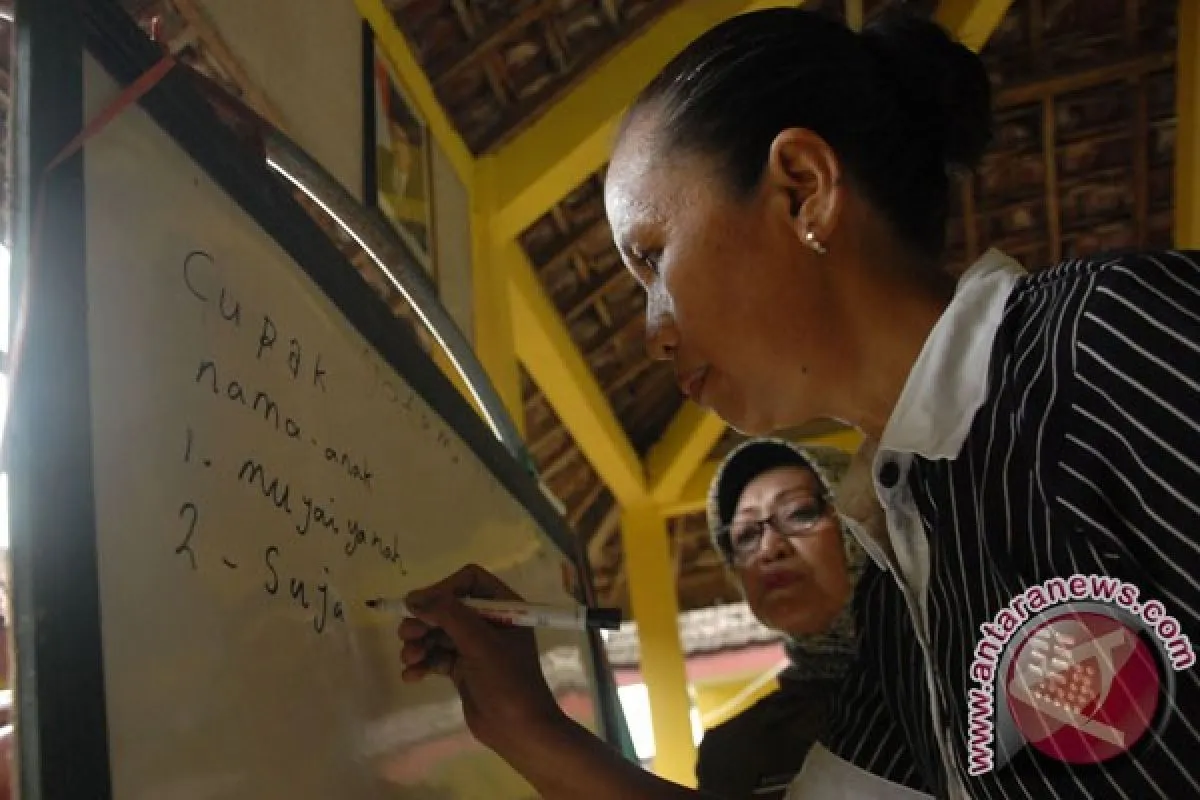 Cupak
nama-anak
1. muyaiyanah.
2 - Suja
www.antaranews.com